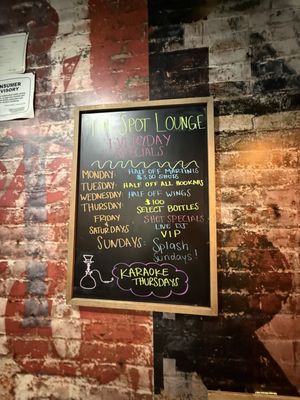 CONSUMER
ADVISORY
The Spot Lounge
Everyday
Specials
Monday: Half off Martinis
$3.50 Shots
Tuesday: Half off all Hookahs
Wednesday: Half off Wings
Thursday: $100
Select Bottles
Friday Shot Specials
Saturdays: Live DJ
VIP
Sundays: Splash
Sundays!
Karaoke
Thursdays